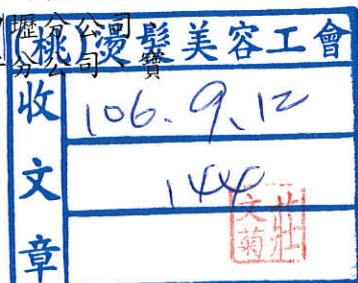 壢分公司
分公司、寶
(桃)燙髮美容工會
收文章
106.9.12
144
莊文菊